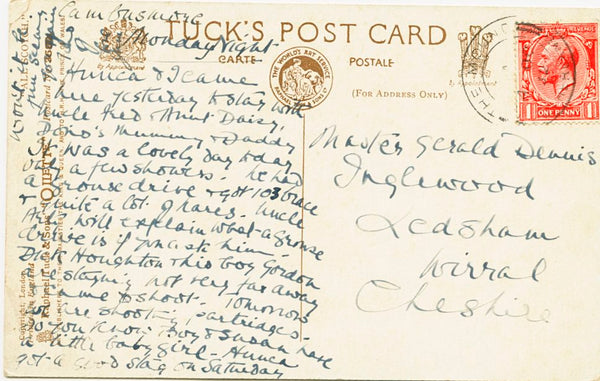 Cambusmore
Monday night
TUCK'S POST CARD
CARTE POSTALE
(FOR ADDRESS ONLY)
THE WORLD'S ART SERVICE
ONE PENNY
Hunca & I came
here yesterday to stay with
Uncle Fred & Aunt Daisy,
Mummy & Daddy
It was a lovely day today
a few showers. We had
a grouse drive & got 103 brace
& quite a lot of hares. Uncle
will explain what a grouse
drive is if you ask him.
Dick Houghton & his boy Gordon
are staying not very far away
& came to shoot. Tomorrow
we shoot partridges.
Do you know Boy & Susan have
a little baby girl - Hunca
got a good stag on Saturday
Master Gerald Dennis
Inglewood
Ledsham
Wirral
Cheshire
Raphael Tuck & Sons' "OILETTE"
Copyright, London